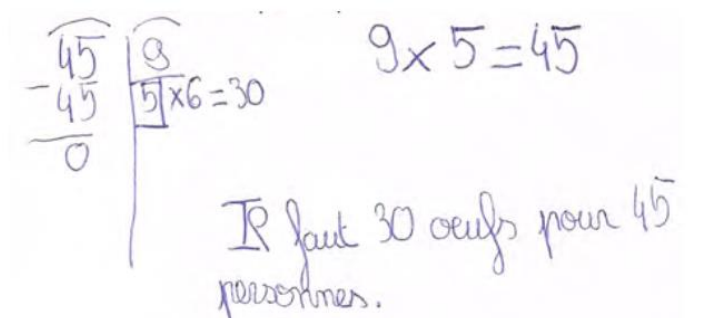 45 | 9
- 45 | 5 ×6=30
0
9×5=45
Il faut 30 oeufs pour 45
personnes.